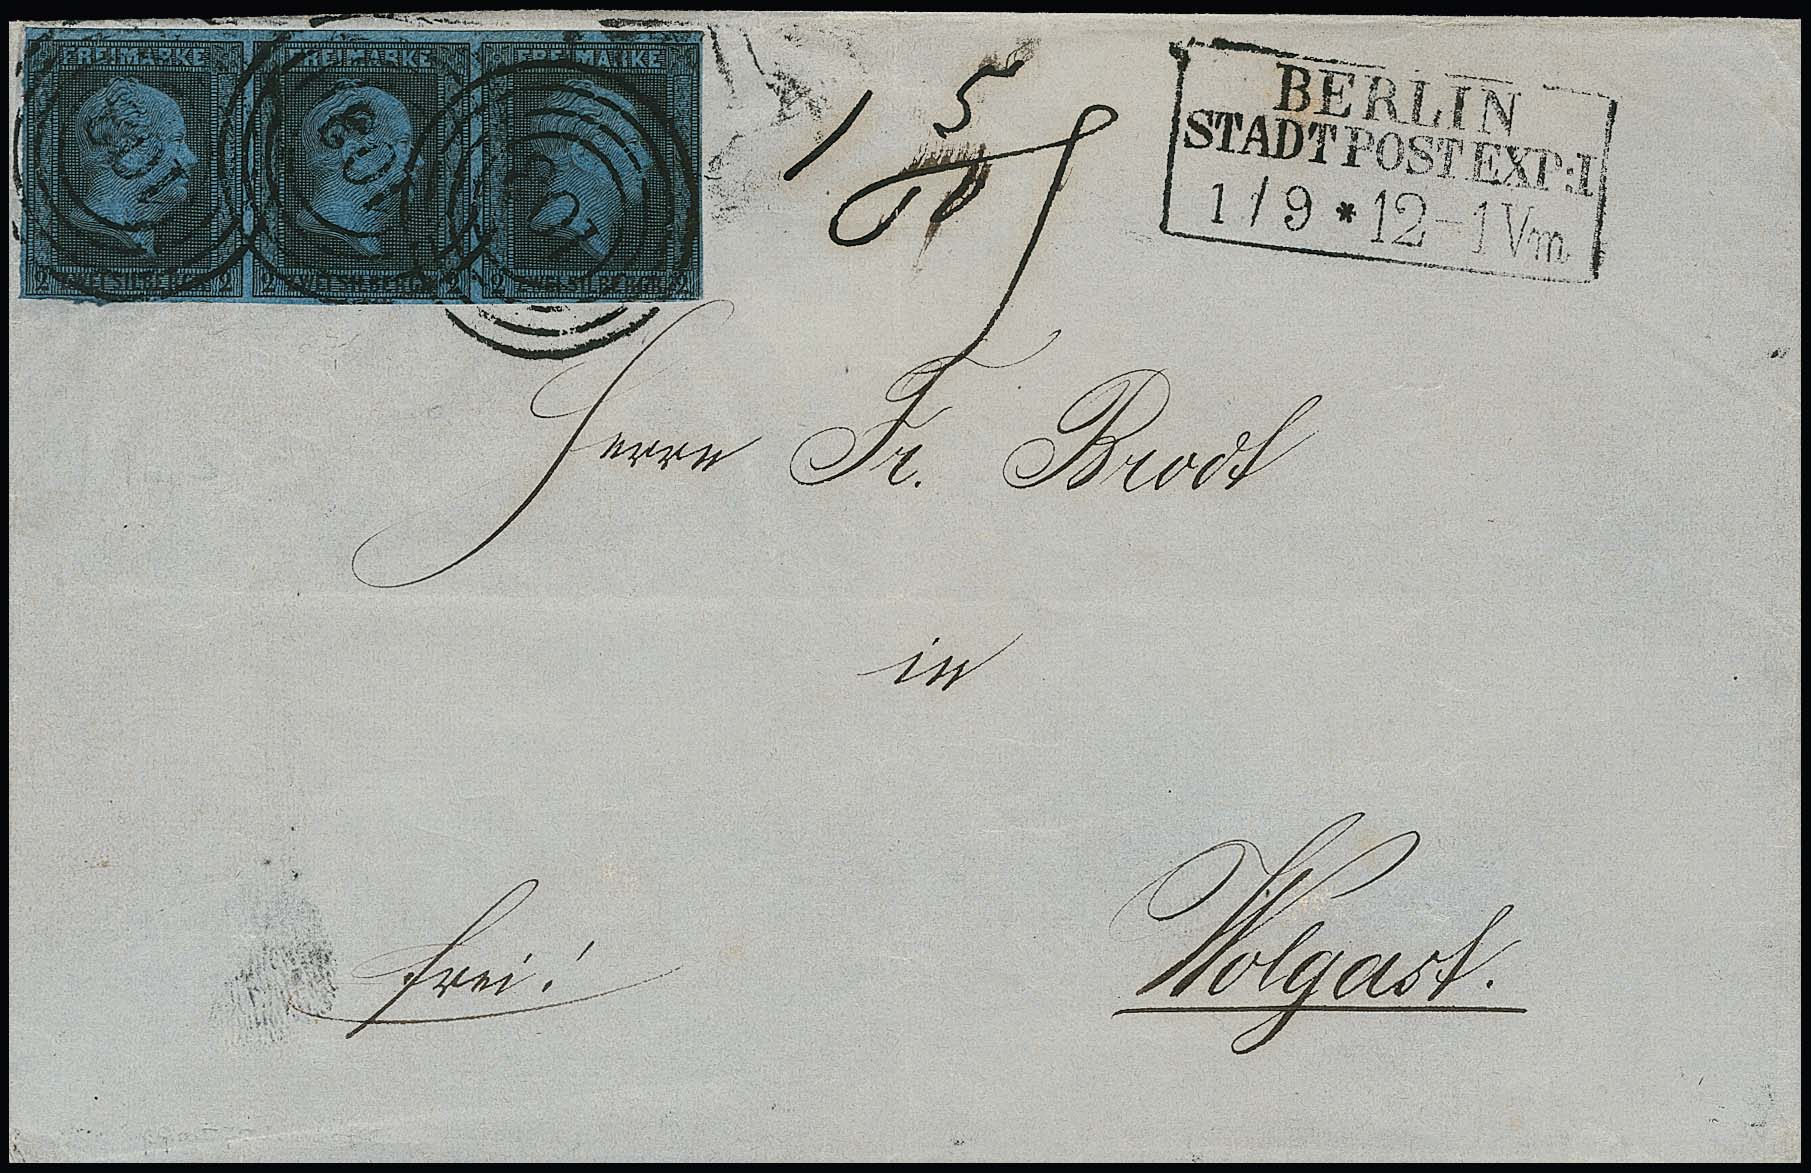 FREIMARKE FREIMARKE FREIMARKE
103 103 103
2 ZWEI SILBERGR. 2 2 ZWEI SILBERGR. 2 2 ZWEI SILBERGR. 2
1 5/10
BERLIN
STADTPOST EXP: I
1/9 * 12-1 Vm
Herrn Fr. Brodt
in
frei! Wolgast.